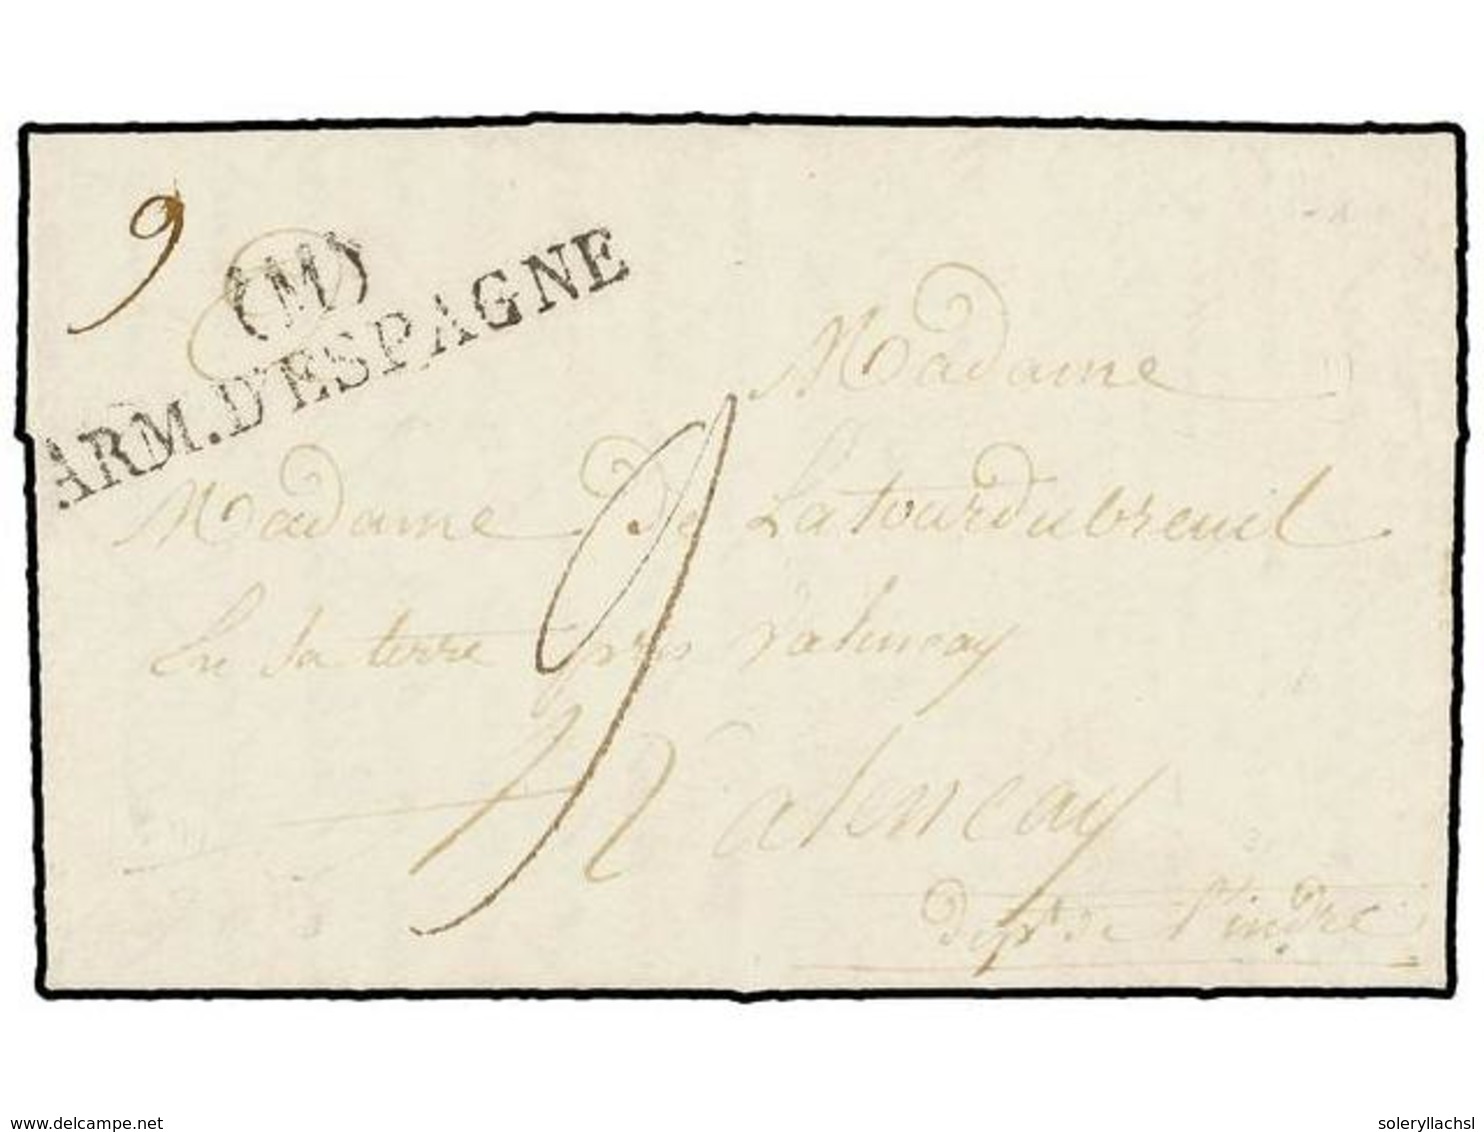 9
(M)
ARM. D'ESPAGNE
Madame
Madame De Latourdubreuil
En Sa terre près Valencay
9
Valencay
dept. de l'indre
delcampe.net
soleryllachsl